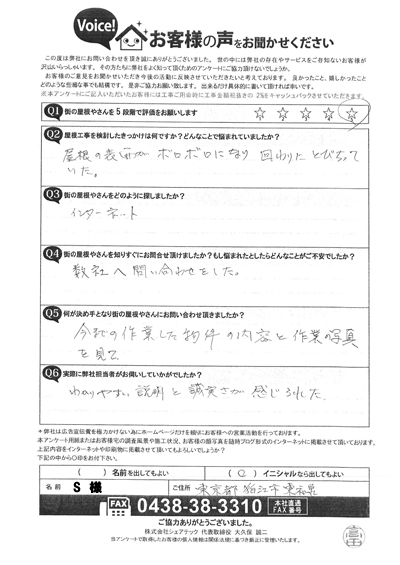 Voice!
お客様の声をお聞かせください
この度は弊社にお問い合わせを頂き誠にありがとうございました。世の中には弊社の存在やサービスをご存知ないお客様が
沢山いらっしゃいます。その方たちに弊社をよく知って頂くためのアンケートにご協力頂けないでしょうか。
お客様のご意見をお聞かせいただき今後の活動に反映させていただきたいと考えております。良かったこと、嬉しかったこと
どのような些細な事でも結構です。是非ご協力お願い致します。出来るだけ具体的に書いて頂ければ幸いです。
※本アンケートにご記入いただいたお客様には工事ご用命時に工事金額税抜きの2%をキャッシュバックさせていただきます。
Q1 街の屋根やさんを5段階で評価をお願いします ☆ ☆ ☆ ☆ ☆
Q2 屋根工事を検討したきっかけは何ですか?どんなことで悩まれていましたか?
屋根の表面がボロボロになり 回りにとびちって
いた。
Q3 街の屋根やさんをどのように探しましたか?
インターネット
Q4 街の屋根やさんを知りすぐにお問合せ頂けましたか?もし悩まれたとしたらどんなことがご不安でしたか?
数社へ問い合わせをした。
Q5 何が決め手となり街の屋根やさんにお問い合わせ頂きましたか?
今までの作業した物件の内容と作業の写真
を見て
Q6 実際に弊社担当者がお伺いしていかがでしたか?
わかりやすい説明と誠実さが感じられた
*弊社は広告宣伝費を極力かけない為にホームページだけを頼りにお客様への営業活動を行っております。
本アンケート用紙またはお客様宅の調査風景や施工状況、お客様の顔写真を随時ブログ形式のインターネットに掲載させて頂いております。
上記内容をインターネットや印刷物に掲載させて頂いてもよろしいでしょうか?
下記の中から〇印をお付け下さい。
( ) 名前を出してもよい ( 〇 ) イニシャルなら出してもよい
名前 S 様 ご住所 東京都狛江市東和泉
FAX 0438-38-3310 本社直通 FAX番号
ご協力ありがとうございました。
株式会社シェアテック 代表取締役 大久保 誠二
当アンケートで取得したお客様の個人情報は関係法規に基づき厳正に管理いたします。